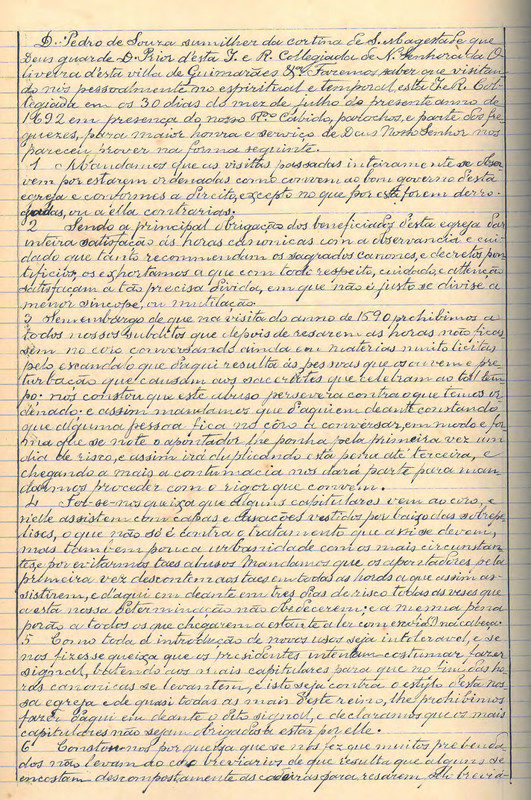 D. Pedro de Souza sumilher da cortina de S. Magestade que
Deus guarde D. Prior d'esta I. e R. Collegiada de N. Senhora da O
liveira d'esta villa de Guimarães &. Fazemos saber que visitan
do nós pessoalmente no espiritual e temporal, esta I. e R. Col-
legiada em os 30 dias do mez de julho do presente anno de
1692 em presença do nosso R. Cabido, parochos, e parte dos fre
guezes, para maior honra e serviço de Deus Nosso Senhor nos
pareceu prover na forma seguinte.
1 Mandamos que as visitas passadas inteiramente se obser
vem por estarem ordenadas como convem ao bom governo d'esta
egreja e conformes a direito, excepto no que por esta forem derro-
gadas, ou a ella contrarias.
2 Sendo a principal obrigação dos beneficiados d'esta egreja dar
inteira satisfação ás horas canonicas com a observancia e cui
dado que tanto recommendam os sagrados canones, e decretos pon
tificios, os exhortámos a que com todo respeito, cuidado, e attenção
satisfaçam a tão precisa divida, em que não é justo se divise a
menor sincope, ou mutilação
3 Sem embargo de que na visita do anno de 1590 prohibimos a
todos nossos subditos que depois de resarem as horas não ficas
sem no coro conversando ainda em materias muito licitas
pelo escandalo que d'aqui resulta ás pessoas que os ouvem e per
turbação que causam aos sacerdotes que celebram ao tal tem
po: nos constou que este abuso persevera contra o que temos or
denado: e assim mandamos que d'aqui em deante constando
que alguma pessoa fica no côro a conversar, em modo e for
ma que se note o apontador lhe ponha pela primeira vez um
dia de risco, e assim irá duplicando esta pena até terceira, e
chegando a mais a contumacia nos dará parte para man
darmos proceder com o rigor que convem.
4 Fez-se-nos queixa que alguns capitulares vem ao coro, e
n'elle assistem com capas e casacões vestidos por baixo das sobrepe
lises, o que não só é contra o tratamento que a si se devem,
mas tambem pouca urbanidade com os mais circunstan
tes, e por evitarmos taes abusos Mandamos que os apontadores pela
primeira vez descontem aos taes em todas as horas a que assim as-
sisterem, e d'aqui em deante em tres dias de risco todas as vezes que
a esta nossa determinação não obedecerem: e a mesma pena
porão a todos os que chegarem a estante a ler com na cabeça.
5 Como toda a introdução de novos usos seja intoleravel, e se
nos fizesse queixa que os presidentes intentam costumar fazer
signal, batendo aos mais capitulares para que no fim das ho
ras canonicas se levantem, e isto seja contra o estylo d'esta nos
sa egreja e de quasi todas as mais d'este reino, lhe prohibimos
fazer d'aqui em deante o dito signal, e declaramos que os mais
capitulares não sejam obrigados a estar por elle.
6 Constou-nos por queixa que se nos fez que muitos prebenda
dos não levam ao côro breviarios de que resulta que alguns se
encostam descompostamente ás cadeiras para resarem, pelo brevia-